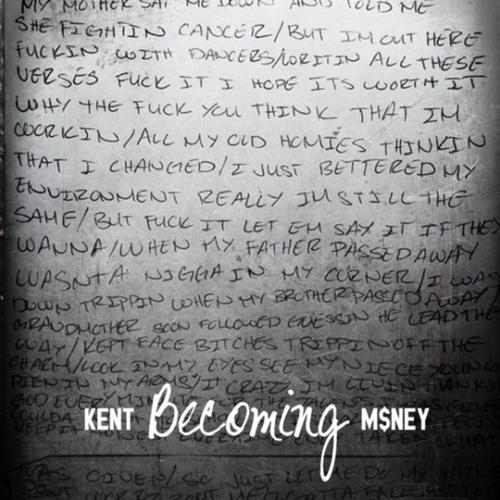 MY MOTHER SAT ME DOWN AND TOLD ME
SHE FIGHTIN CANCER/BUT IM OUT HERE
FUCKIN WITH DANCERS/WRITIN ALL THESE
VERSES FUCK IT I HOPE ITS WORTH IT
WHY THE FUCK YOU THINK THAT IM
WORKIN/ALL MY OLD HOMIES THINKIN
THAT I CHANGED/I JUST BETTERED MY
ENVIRONMENT REALLY IM STILL THE
SAME/BUT FUCK IT LET EM SAY IT IF THEY
WANNA/WHEN MY FATHER PASSED AWAY
WASNT A NIGGA IN MY CORNER/I WAS
DOWN TRIPPIN WHEN MY BROTHER PASSED AWAY
GRANDMOTHER SOON FOLLOWED GUESSIN HE LEAD THE
WAY/KEPT FACE BITCHES TRIPPIN OFF THE
CHARM/LOOK IN MY EYES SEE MY NIECE YOUNG
DIEN IN MY ARMS/IT CRAZY IM LIVIN
GOD EVERY
KENT Becoming M$NEY
TAKEN WHAT
WAS GIVEN/SO JUST LET ME DO MY